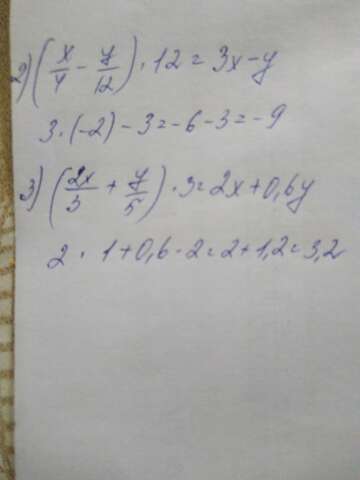 2) (x/4 - y/12) · 12 = 3x - y
3 · (-2) - 3 = -6 - 3 = -9
3) (2x/3 + y/5) · 3 = 2x + 0,6y
2 · 1 + 0,6 · 2 = 2 + 1,2 = 3,2